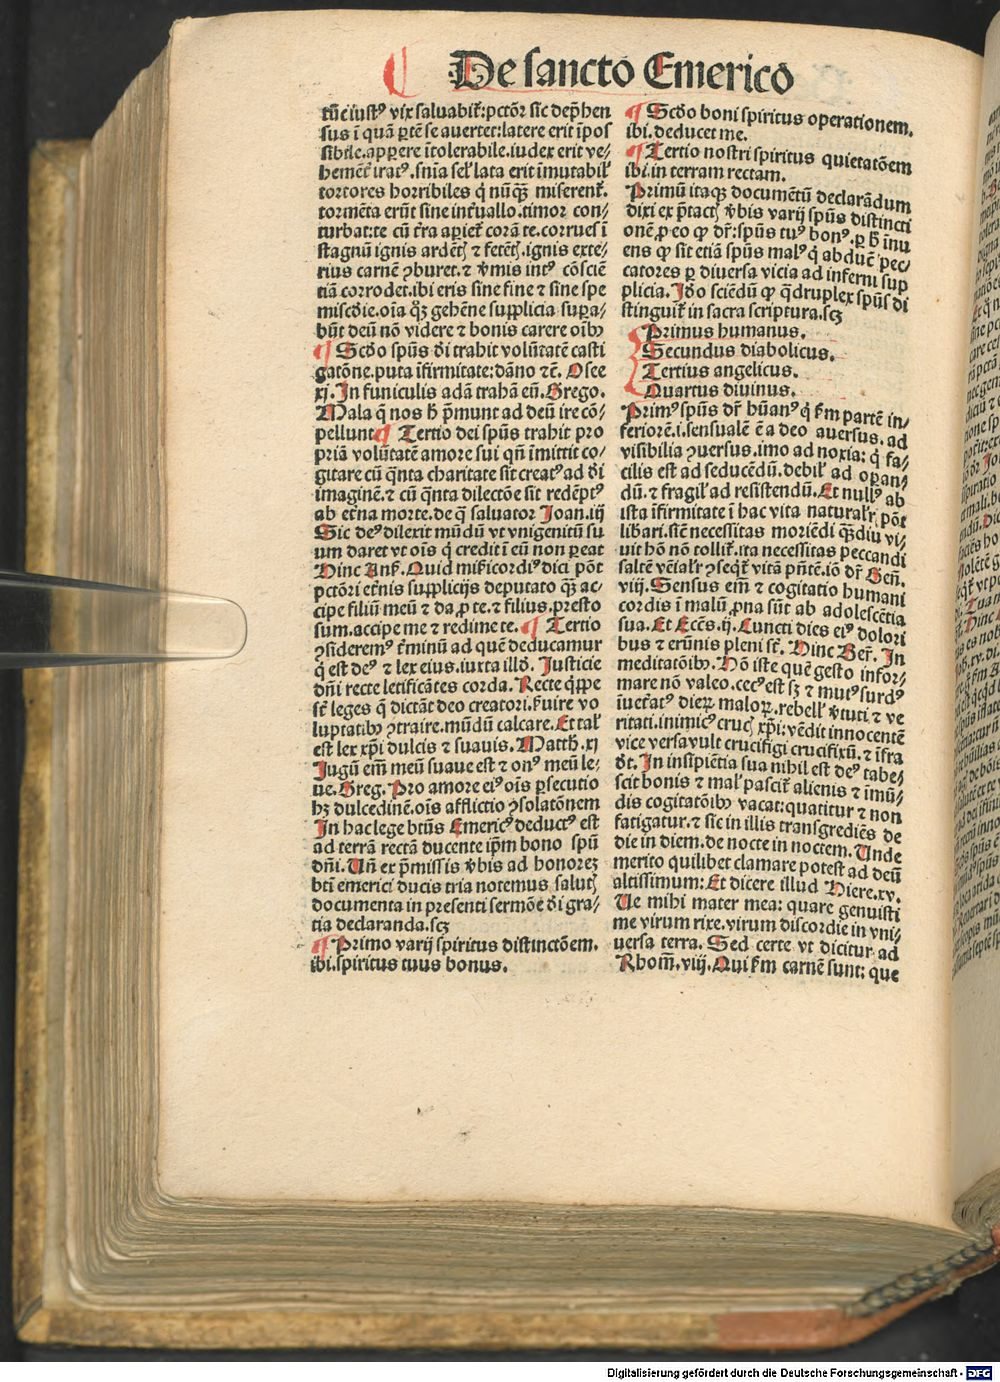 De sancto Emerico
tūc iustꝰ vix saluabiť: pctōr sic dep̄hen
sus ī quā ꝑtē se auertet: latere erit īpos
sibile. apꝑere ītolerabile. iudex erit ve⸗
hemēť iratꝰ. snīa seľ lata erit īmutabiľ
tortores horribiles q̇ nūq̄ꝫ miserenť.
tormēta erūt sine inťuallo. timor con⸗
turbat: te cū ťra aꝑieť corā te. corrues ī
stagnū ignis ardētꝭ ⁊ fetētꝭ. ignis exte⸗
rius carnē ꝯburet. ⁊ v̓mis intꝰ cōsciē
tiā corrodet. ibi eris sine fine ⁊ sine spe
miscd̓ie. oīa qꝫ gehēne supplicia suꝑa⸗
būt deū nō videre ⁊ bonis carere oībꝰ
¶ Scd̓o spūs d̓i trahit volūtatē casti
gatōne. puta īfirmitate: dāno ⁊c̄. Osee
xj. In funiculis adā trahā eū. Grego.
Mala q̄ nos h̓ p̄munt ad deū ire cō⸗
pellunt ¶ Tertio dei spūs trahit pro
priā volūtatē amore sui qn̄ īmittit co⸗
gitare cū q̄nta charitate sit creatꝰ ad d̓i
imaginē. ⁊ cū q̄nta dilectōe sit redēptꝰ
ab eťna morte. de q̇ saluator Joan. iij
Sic deꝰ dilexit mūdū vt vnigenitū su
um daret vt oīs q̇ credit ī eū non ꝑeat
Hinc Ans̓. Quid mis̓icordiꝰ dici pōt
pctōri eťnis supplicijs deputato q̄ꝫ ac⸗
cipe filiū meū ⁊ da ꝓ te. ⁊ filius. presto
sum. accipe me ⁊ redime te. ¶ Tertio
ꝯsideremꝰ ťminū ad quē deducamur
q̇ est deꝰ ⁊ lex eius. iuxta illd̓. Justicie
dn̄i recte letificātes corda. Recte q̇ppe
sť leges q̄ dictāt deo creatori s̓uire vo
luptatibꝰ ꝯtraire. mūdū calcare. Et taľ
est lex xp̄i dulcis ⁊ suauis. Matth. xj
Jugū em̄ meū suaue est ⁊ onꝰ meū le⸗
ue. Greg. Pro amore eiꝰ oīs ꝑsecutio
hꝫ dulcedinē. oīs afflictio ꝯsolatōnem
In hac lege btūs Emericꝰ deductꝰ est
ad terrā rectā ducente ip̄m bono spū
dn̄i. Uñ ex p̄missis v̓bis ad honorez
btī emerici ducis tria notemus salutꝭ
documenta in presenti sermōe d̓i gra⸗
tia declaranda. scꝫ
¶ Primo varij spiritus distinctōem.
ibi. spiritus tuus bonus.
¶ Scd̓o boni spiritus operationem.
ibi. deducet me.
¶ Tertio nostri spiritus quietatōem
ibi. in terram rectam.
Primū itaqꝫ documētū declarādum
dixi ex p̄tactꝭ v̓bis varij spūs distincti
onē. ꝓ eo ꝙ dr̄: spūs tuꝰ bonꝰ. ꝑ h̓ īnu
ens ꝙ sit etiā spūs malꝰ q̇ abducē pec⸗
catores ꝑ diuersa vicia ad inferni sup
plicia. Id̓o sciēdū ꝙ q̄druplex spūs di
stinguiť in sacra scriptura. scꝫ
Primus humanus.
Secundus diabolicus.
Tertius angelicus.
Quartus diuinus.
Primꝰ spūs dr̄ hūanꝰ q̇ s̓m partē in⸗
feriorē. i. sensualē ē a deo auersus. ad
visibilia ꝯuersus. imo ad noxia: q̇ fa⸗
cilis est ad seducēdū. debiľ ad oꝑan⸗
dū. ⁊ fragiľ ad resistendū. Et nullꝰ ab
ista īfirmitate ī hac vita naturaľr pōt
libari. sič necessitas moriēdi q̄ꝫdiu vi⸗
uit hō nō tolliť. ita necessitas peccandi
saltē veniaľr ꝯseq̇ť vitā pn̄tē. iō dr̄ Gen̄.
viij. Sensus em̄ ⁊ cogitatio humani
cordis ī malū ꝓna sūt ab adolescētia
sua. Et Eccs̄. ij. Cuncti dies eiꝰ dolori
bus ⁊ erūnis pleni sť. Hinc Ber̄. In
meditatōibꝰ. Nō iste quē gesto infor⸗
mare nō valeo. cecꝰ est sꝫ ⁊ mutꝰ surdꝰ
iueťatꝰ dieꝝ maloꝝ. rebellꝭ v̓tuti ⁊ ve
ritati. inimicꝰ crucꝭ xp̄i: vēdit innocentē
vice versa vult crucifigi crucifixū. ⁊ īfra
d̓t. In insipiētia sua nihil est deꝰ tabe⸗
scit bonis ⁊ maľ pasciť alienis ⁊ īmū⸗
dis cogitatōibꝰ vacat: quatitur ⁊ non
fatigatur. ⁊ sic in illis transgrediēs de
die in diem. de nocte in noctem. Unde
merito quilibet clamare potest ad deū
altissimum: Et dicere illud Hiere. xv.
Ue mihi mater mea: quare genuisti
me virum rixe. virum discordie in vni⸗
uersa terra. Sed certe vt dicitur ad
Rhom̄. viij. Qui s̓m carnē sunt: que
Digitalisierung gefördert durch die Deutsche Forschungsgemeinschaft - DFG